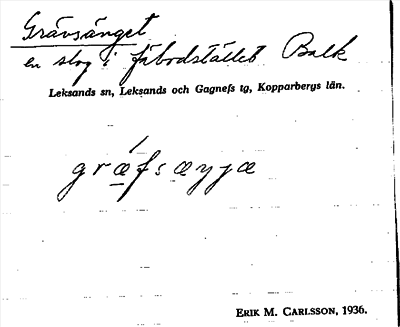 Grävsänget
en slog i fäbodstället Balk
Leksands sn, Leksands och Gagnefs tg, Kopparbergs län.
grǽ̲fsæyyæ
ERIK M. CARLSSON, 1936.